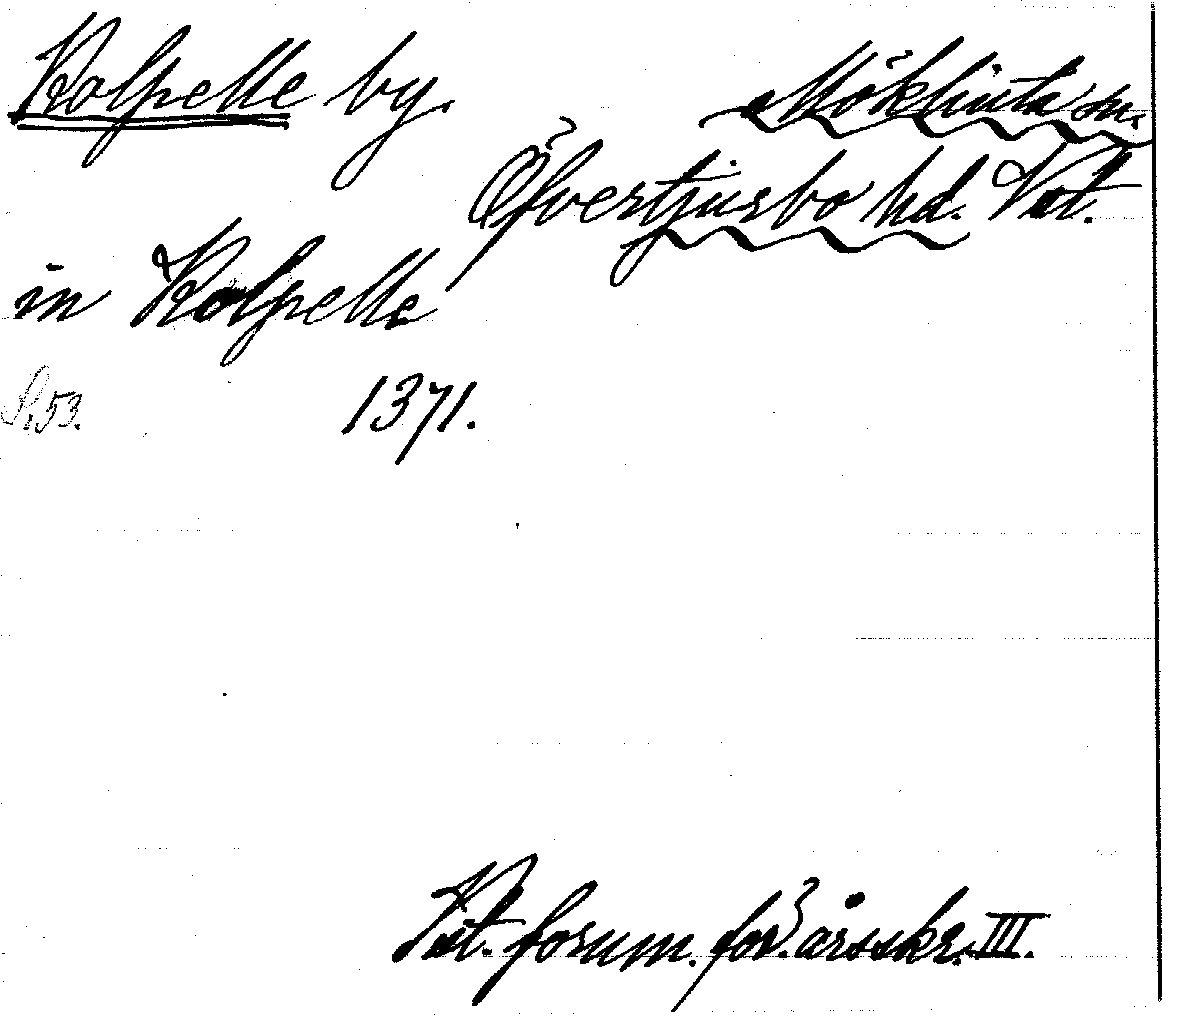 Kolpelle by.
Möklinta sn.
Öfvertjurbo hd. Vstm.
in Kolpelle
S. 53.
1371.
Väst. fornm. för. årsskr. III.